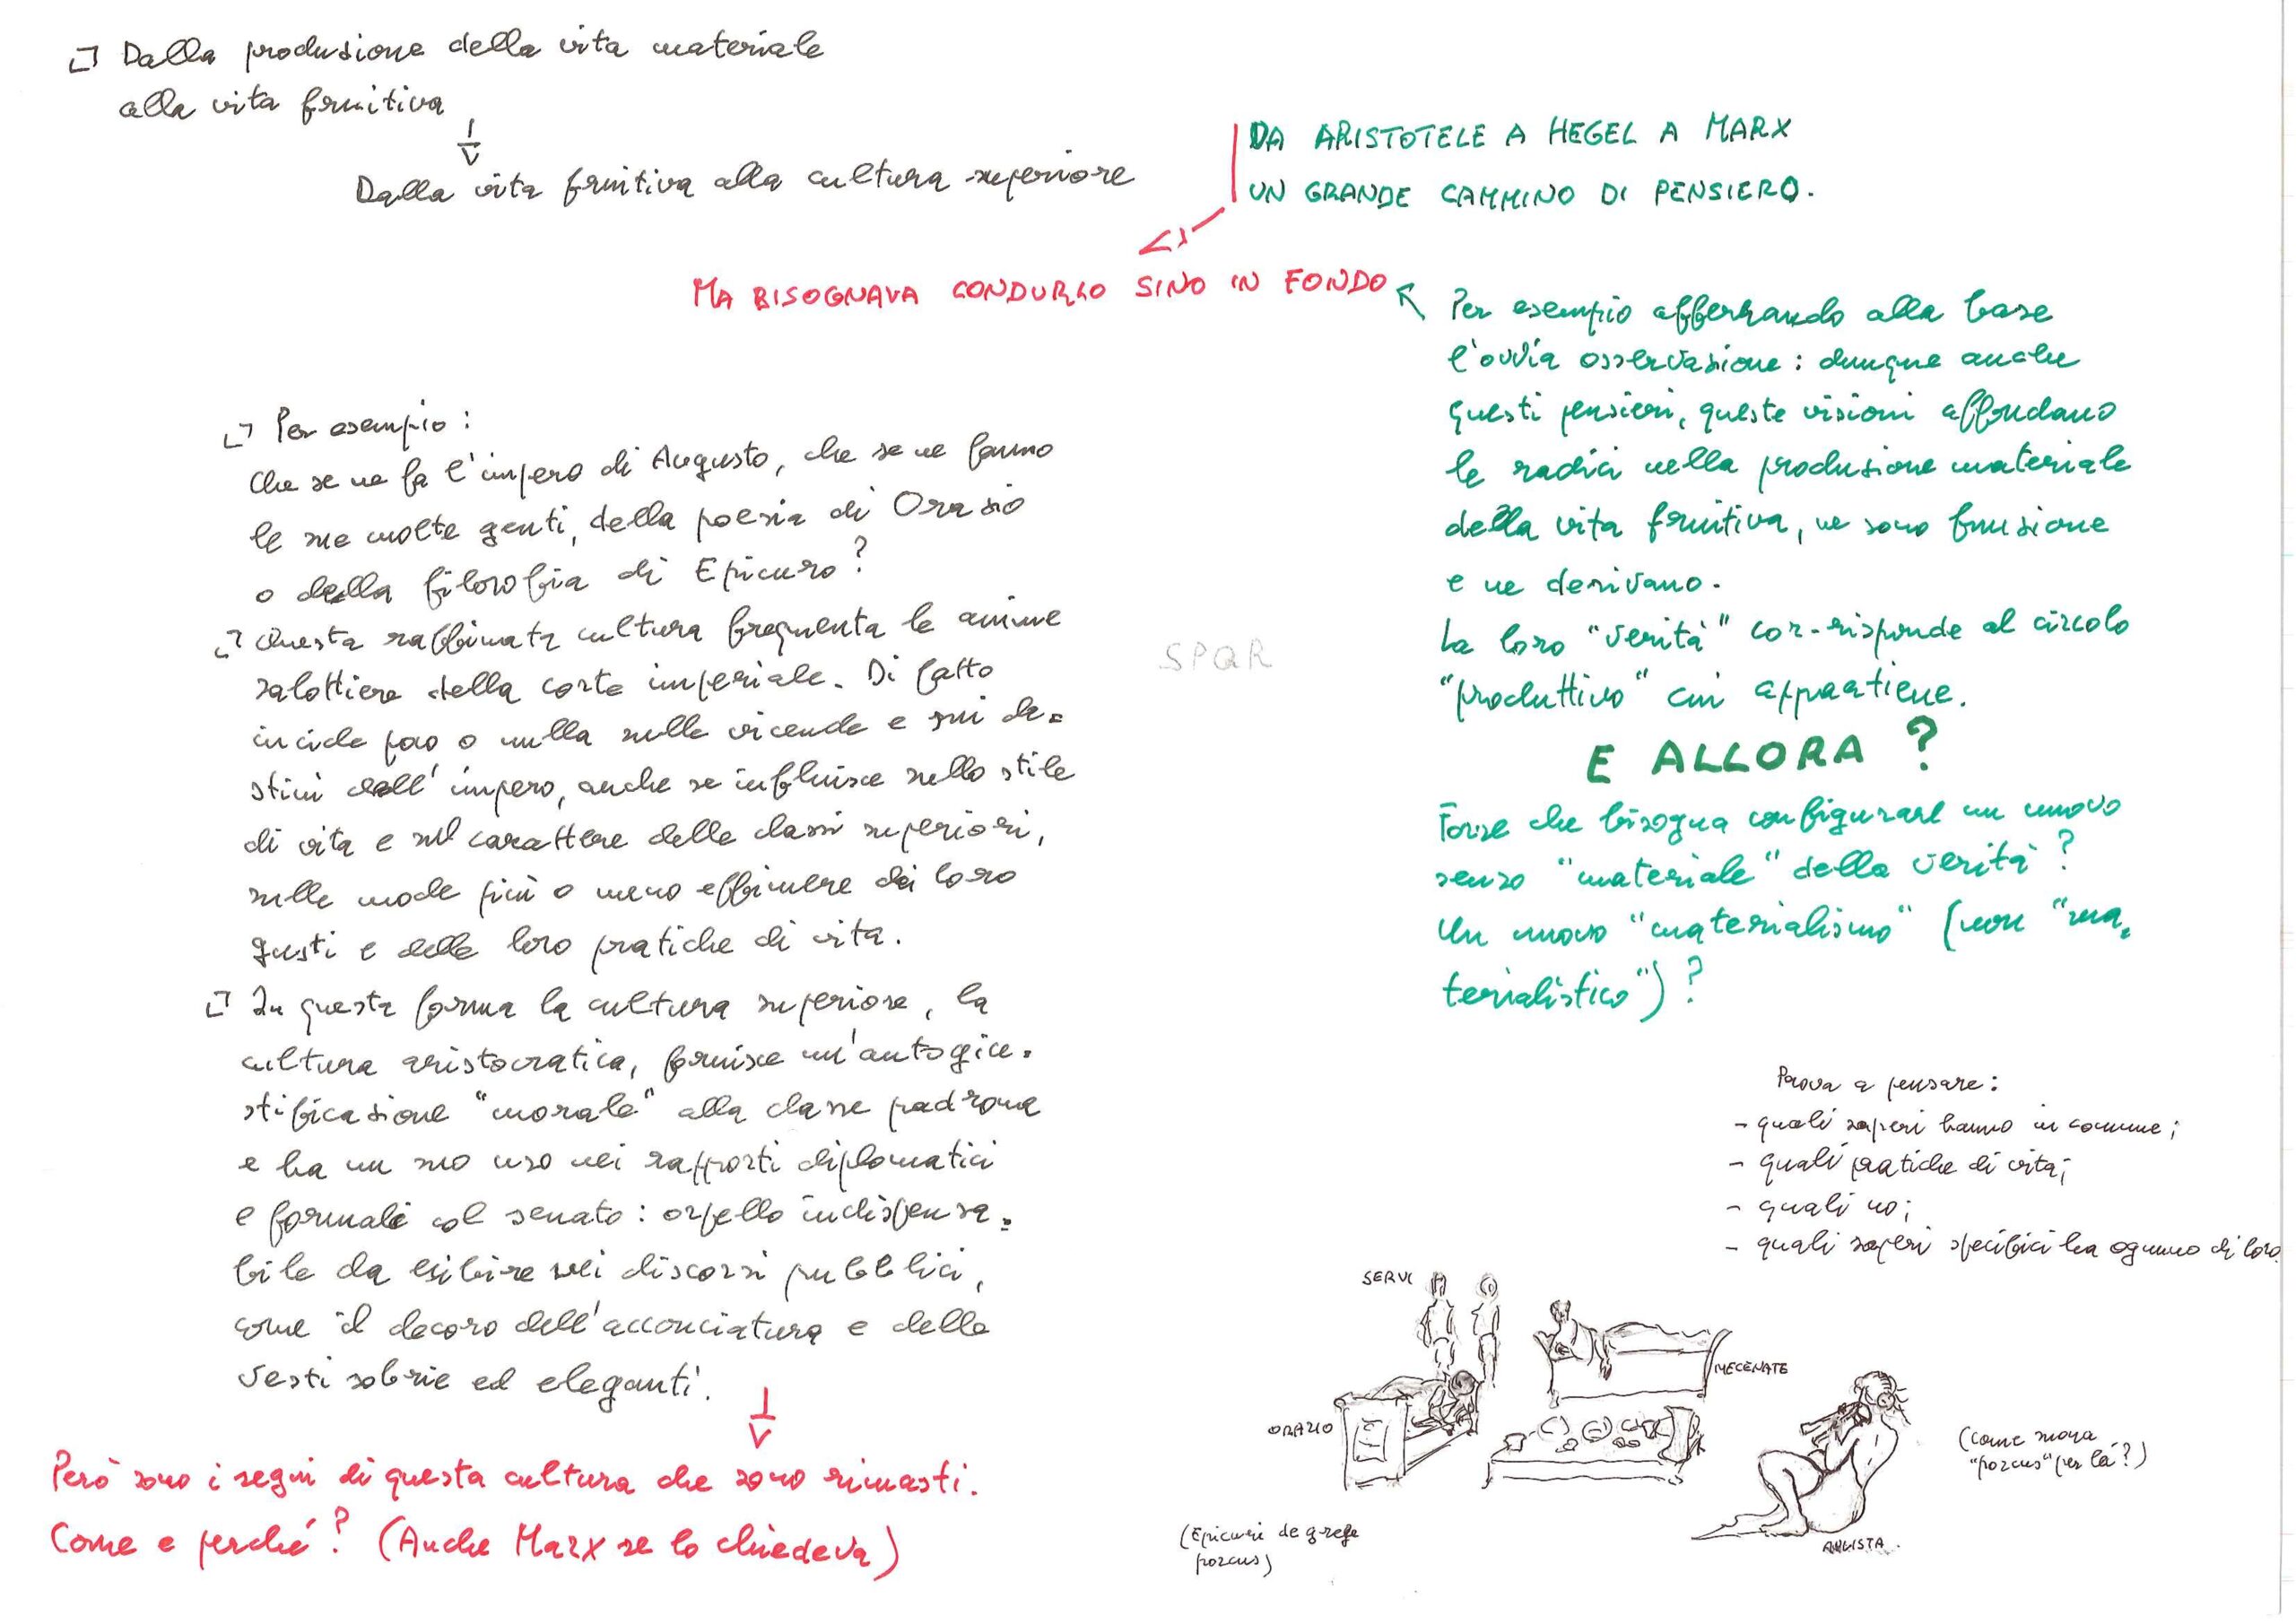 Dalla produzione della vita materiale
alla vita fruitiva
Dalla vita fruitiva alla cultura superiore
DA ARISTOTELE A HEGEL A MARX
UN GRANDE CAMMINO DI PENSIERO.
MA BISOGNAVA CONDURLO SINO IN FONDO
Per esempio afferrando alla base
l'ovvia osservazione: dunque anche
questi pensieri, queste visioni affondano
le radici nella produzione materiale
della vita fruitiva, ne sono fruizione
e ne derivano.
La loro "verità" cor-risponde al circolo
"produttivo" cui appartiene.
E ALLORA?
Forse che bisogna configurare un nuovo
senso "materiale" della verità?
Un nuovo "materialismo" (non "ma=
terialistico")?
Per esempio:
Che se ne fa l'impero di Augusto, che se ne fanno
le sue molte genti, della poesia di Orazio
o della filosofia di Epicuro?
Questa raffinata cultura frequenta le anime
salottiere della corte imperiale. Di fatto
incide poco o nulla sulle vicende e sui de=
stini dell'impero, anche se influisce sullo stile
di vita e sul carattere delle classi superiori,
sulle mode più o meno effimere dei loro
gusti e delle loro pratiche di vita.
In questa forma la cultura superiore, la
cultura aristocratica, fornisce un'autogiu=
stificazione "morale" alla classe padrona
e ha un suo uso nei rapporti diplomatici
e formali col senato: orpello indispensa=
bile da esibire nei discorsi pubblici,
come il decoro dell'acconciatura e delle
vesti sobrie ed eleganti.
Però sono i segni di questa cultura che sono rimasti.
Come e perché? (Anche Marx se lo chiedeva)
SPQR
Prova a pensare:
- quali saperi hanno in comune;
- quali pratiche di vita;
- quali no;
- quali saperi specifici ha ognuno di loro.
SERVI
MECENATE
ORAZIO
AULISTA.
(come suona
"porcus" per là?)
(Epicuri de grege
porcus)